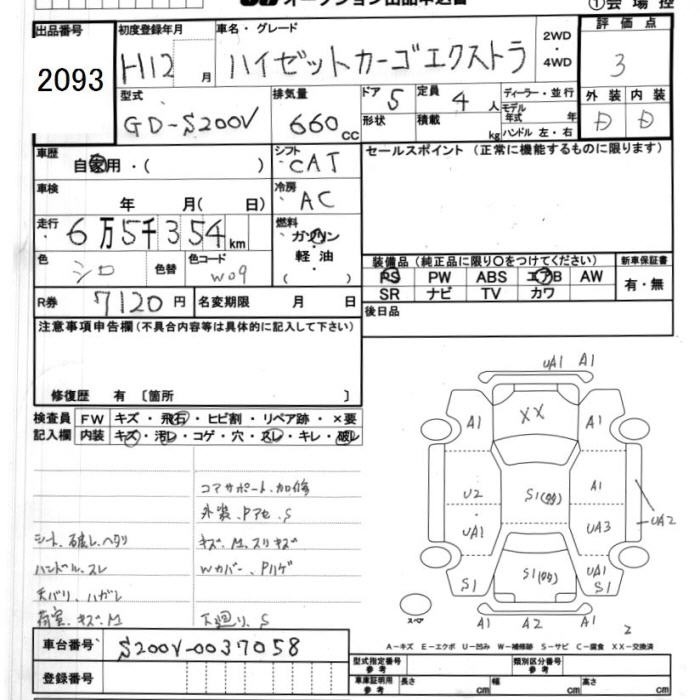 オークション出品申込書 ①会場控
出品番号 初度登録年月 車名・グレード 2WD・4WD 評価点
2093 H12 月 ハイゼットカーゴエクストラ 3
型式 排気量 ドア 5 定員 4 人 ディーラー・並行 外装 内装
GD-S200V 660 cc 形状 積載 kg モデル年式 年 D D
ハンドル 左・右
車歴 自家用・( ) シフト CAT セールスポイント (正常に機能するものに限ります)
車検 年 月( 日) 冷房 AC
走行 6万5千354 km 燃料 ガソリン 軽油 ( )
色 シロ 色替 色コード W09 装備品 (純正品に限り〇をつけてください) 新車保証書
PS PW ABS エアB AW 有・無
SR ナビ TV カワ
R券 7120 円 名変期限 月 日 後日品
注意事項申告欄 (不具合内容等は具体的に記入して下さい)
修復歴 有 〔箇所 〕
検査員 FW キズ・飛石・ヒビ割・リペア跡・×要
記入欄 内装 キズ・汚レ・コゲ・穴・スレ・キレ・破レ
コアサポート、加修
外装、Pアセ、S
シート、破レ、ヘタリ キズ、M、スリキズ
ハンドル、スレ Wカバー、Pハゲ
天バリ、ハガレ
荷室、キズ、M 下廻り、S
UA1 A1
A1 XX A1
U2 S1(多) A1
UA1 UA3 UA2
S1 S1(多) UA1 S1
スペア A1 A2 A1
2
A-キズ E-エクボ U-凹み W-補修跡 S-サビ C-腐食 XX-交換済
車台番号 S200V-0037058
登録番号
型式指定番号 参考 類別区分番号 参考
車庫証明用 参考 長さ cm 幅 cm 高さ cm